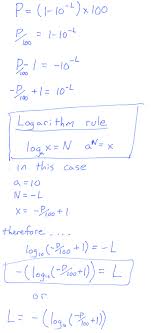 P = (1-10^-L) x 100
P/100 = 1-10^-L
P/100 - 1 = -10^-L
-P/100 + 1 = 10^-L
Logarithm rule
log_a x = N a^N = x
in this case
a = 10
N = -L
x = -P/100 + 1
therefore ....
log_10 (-P/100 + 1) = -L
-(log_10 (-P/100 + 1)) = L
or
L = -(log_10 (-P/100 + 1))